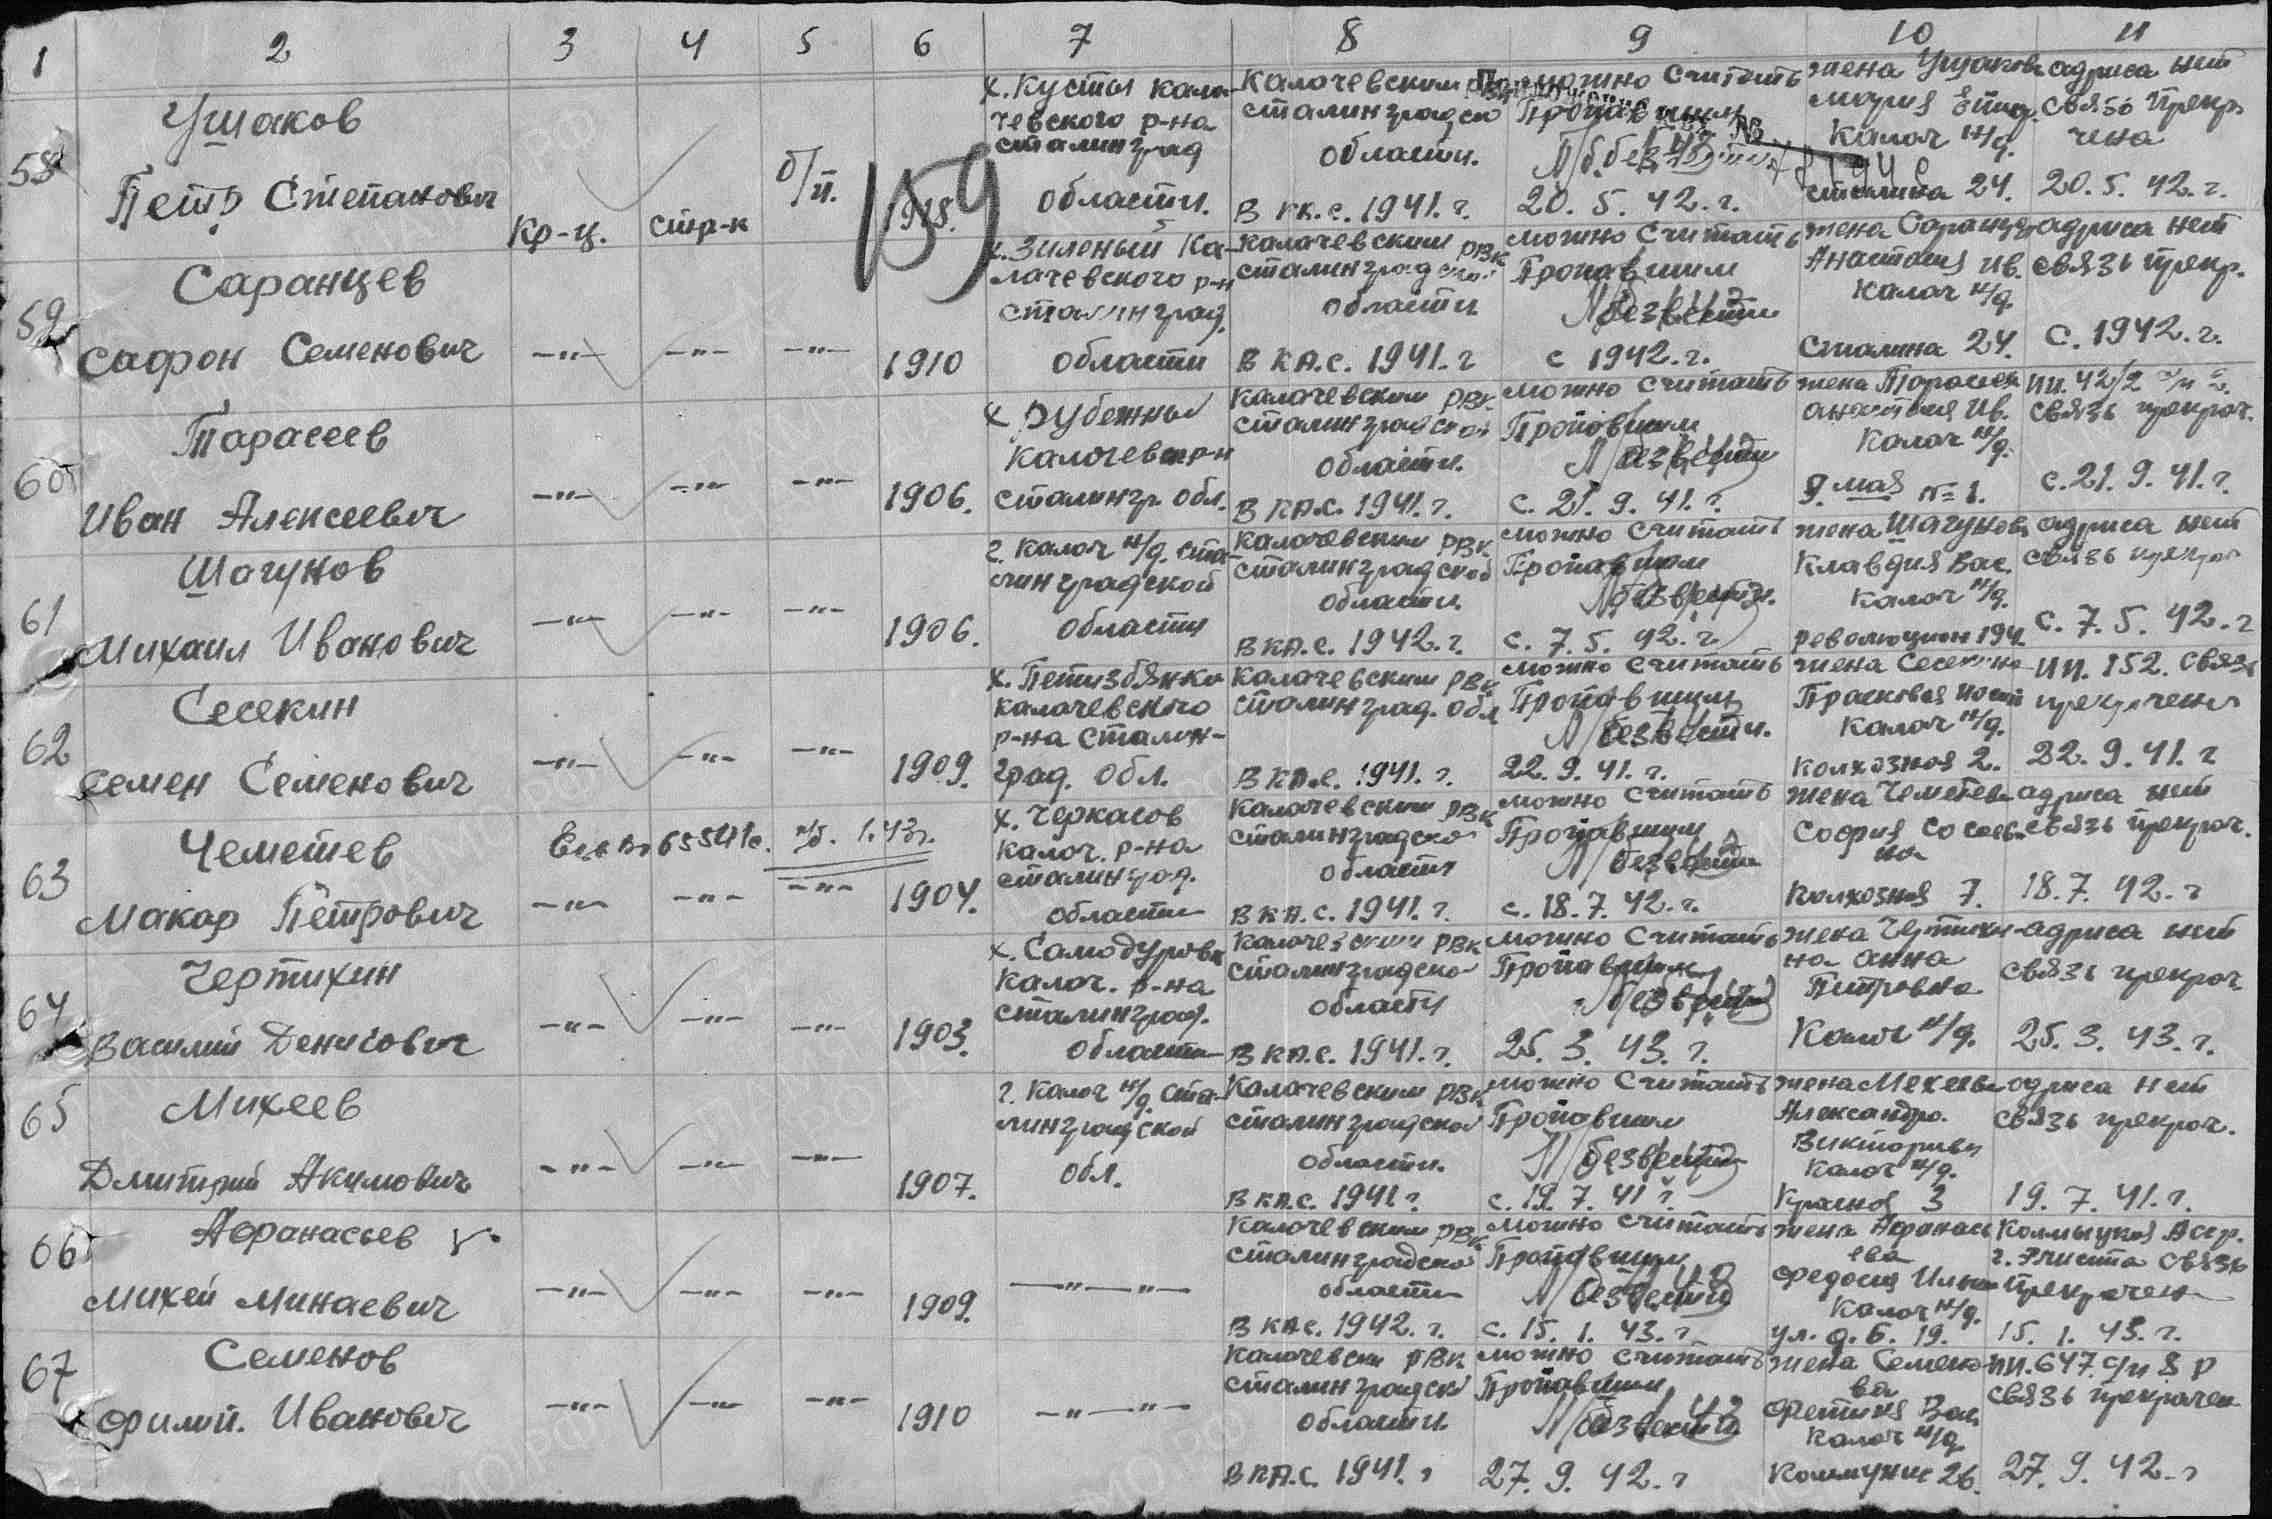 1 2 3 4 5 6 7 8 9 10 11
58
Ушаков
Петр Степанович
кр-ц.
стр-к
б/п.
1918.
159
х. Кусты кала-
чевского р-на
сталинград
области.
Калачевским РВК
сталинградско
области.
в кк. с. 1941. г.
можно считать
Пропавшим
без
20. 5. 42. г.
жена Ушакова
Мария
Калач н/д.
сталина 24.
адреса нет
связь прекра
чена
20. 5. 42. г.
59
Саранцев
Сафон Семенович
—"— —"— —"—
1910
х. Зиленый Ка-
лачевского р-н
сталинград.
области
Калачевским РВК
сталинградской
области
в КА. с. 1941. г
можно считать
Пропавшим
безвести
с 1942. г.
жена Саранце
Анастасия Ив.
Калач н/д
Сталина 24.
адреса нет
связь прекр.
с. 1942. г.
60
Тарасеев
Иван Алексеевич
—"— —"— —"—
1906.
х Рубежный
Калачев р-н
сталингр. обл.
Калачевским РВК.
сталинградской
области.
в КА. с. 1941. г.
можно считать
Пропавшим
безвести
с. 21. 9. 41. г.
жена Тарасеев
анастасия Ив.
Калач н/д.
9 мая № 1.
пп. 42/2
связь прекрач.
с. 21. 9. 41. г.
61
Шагунов
Михаил Иванович
—"— —"— —"—
1906.
г. Калач н/д. ста
линградской
области
Калачевским РВК
сталинградской
области.
в КА. с. 1942. г.
можно считать
Пропавшим
безвести.
с. 7. 5. 42. г.
жена Шагунова
Клавдия Вас.
Калач н/д.
революцион 194.
адреса нет
связь прекрач
с. 7. 5. 42. г
62
Сесекин
Семен Семенович
—"— —"— —"—
1909.
х. Петизбянка
калачевского
р-на Сталин-
град. Обл.
Калачевским РВК
сталинград. обл
в КА. с. 1941. г.
можно считать
Пропавшим
безвести.
22. 9. 41. г.
жена Сесекина
Прасковья
Калач н/д.
колхозная 2.
пп. 152. связь
прекрачена
22. 9. 41. г
63
Чеметев
Макар Петрович
65541с. 1.43г.
—"— —"— —"—
1904.
х. Черкасов
калач. р-на
сталинград.
области
Калачевским РВК
сталинградско
области
в КА. с. 1941. г.
можно считать
Пропавшим
безвести
с. 18. 7. 42. г.
жена Чеметева
София
на
Колхозная 7.
адреса нет
связь прекрач.
18. 7. 42. г
64
Чертихин
Василий Денисович
—"— —"— —"—
1903.
х. Самодуровк
Калач. р-на
сталинград.
области
Калачевским РВК
сталинградско
области
в КА. с. 1941. г.
можно считать
Пропавшим
безвести
25. 3. 43. г.
жена Чертихи-
на анна
Петровна
Калач н/д.
адреса нет
связь прекрач
25. 3. 43. г.
65
Михеев
Дмитрий Акимович
—"— —"— —"—
1907.
г. Калач н/д. ста-
линградской
обл.
Калачевским РВК
сталинградской
области.
в КА. с. 1941 г.
можно считать
Пропавшим
безвести
с. 19. 7. 41 г.
жена Мехеева
Александра.
Викторовн
Калач н/д.
Красная 3
адреса нет
связь прекрач.
19. 7. 41. г.
66
Афранасьев
Михей Минаевич
—"— —"— —"—
1909.
—"—
Калачевским РВК
сталинградской
области
в КА с. 1942. г.
можно считать
Пропавшим
безвести
с. 15. 1. 43. г.
жена Афранась
ева
Федосия
Калач н/д.
ул. д. б. 19.
Калмыцкая Асср.
г. Элиста связь
прекрачен
15. 1. 43. г.
67
Семенов
Филип. Иванович
—"— —"— —"—
1910
—"—
Калачевски РВК
сталинградск
области
в КА. с. 1941. г
можно считать
Пропавшим
безвести
27. 9. 42. г
жена Семено
ва
Вас
Калач н/д
Коммунис 26.
пп. 647.
связь прекрачен
27. 9. 42. г